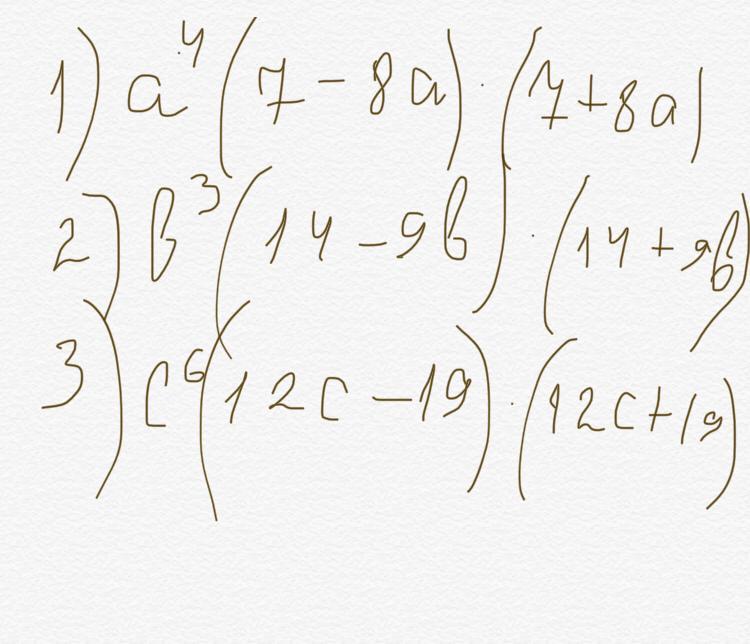 1) a⁴(7 - 8a) · (7 + 8a)
2) b³(14 - 9b) · (14 + 9b)
3) c⁶(12c - 19) · (12c + 19)